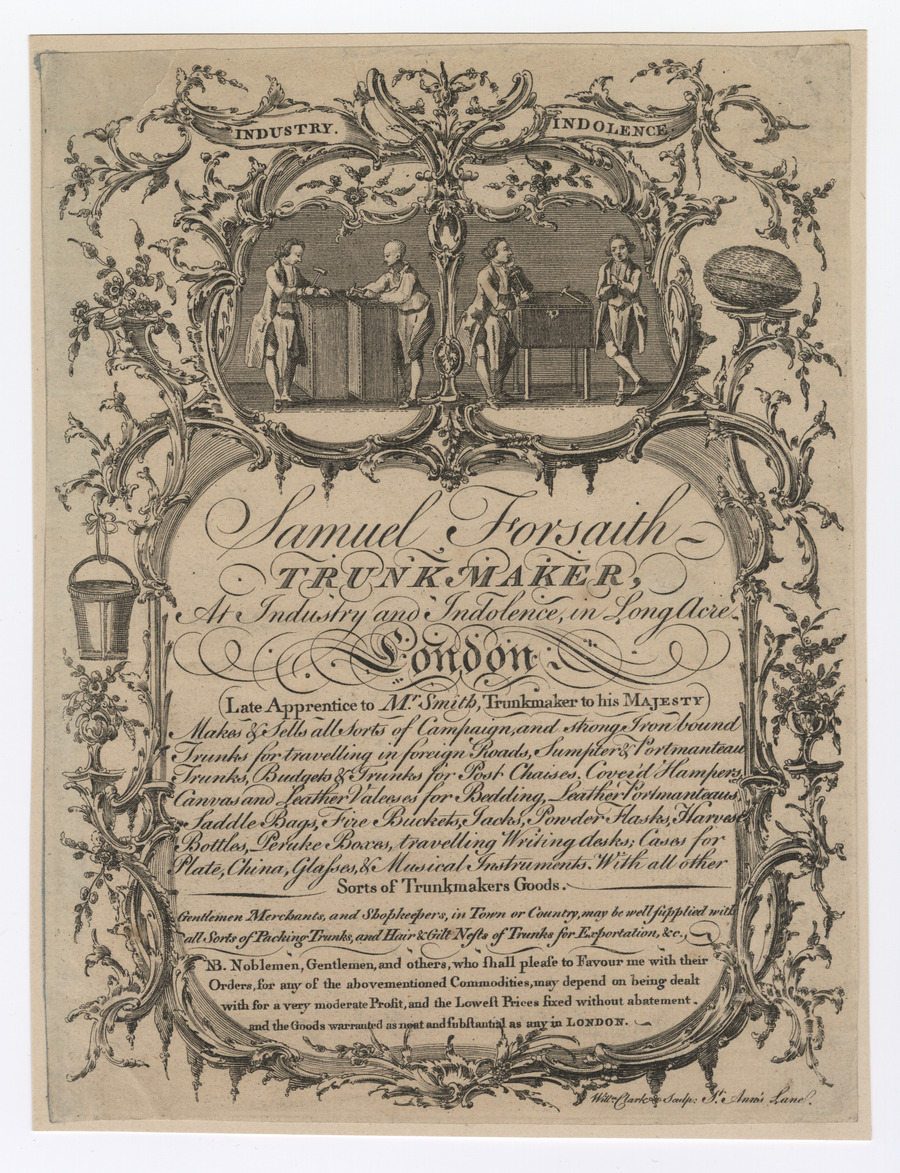 INDUSTRY. INDOLENCE
Samuel Forsaith
TRUNK MAKER,
At Industry and Indolence, in Long Acre
London
(Late Apprentice to Mr. Smith, Trunkmaker to his MAJESTY)
Makes & Sells all Sorts of Campaign, and strong Iron bound
Trunks for travelling in foreign Roads, Sumpter & Portmanteau
Trunks, Budgets & Trunks for Post Chaises. Cover'd Hampers,
Canvas and Leather Valeeses for Bedding, Leather Portmanteaus,
Saddle Bags, Fire Buckets, Jacks, Powder Flasks, Harvest
Bottles, Peruke Boxes, travelling Writing desks; Cases for
Plate, China, Glaſses, & Musical Instruments. With all other
Sorts of Trunkmakers Goods.
Gentlemen Merchants, and Shopkeepers, in Town or Country, may be well ſupplied with
all Sorts of Packing Trunks, and Hair & Gilt Neſts of Trunks for Exportation, &c.
NB. Noblemen, Gentlemen, and others, who ſhall pleaſe to Favour me with their
Orders, for any of the abovementioned Commodities, may depend on being dealt
with for a very moderate Profit, and the Loweſt Prices fixed without abatement.
and the Goods warranted as neat and ſubſtantial as any in LONDON.
Willm. Clark Sculp: St. Ann's Lane.